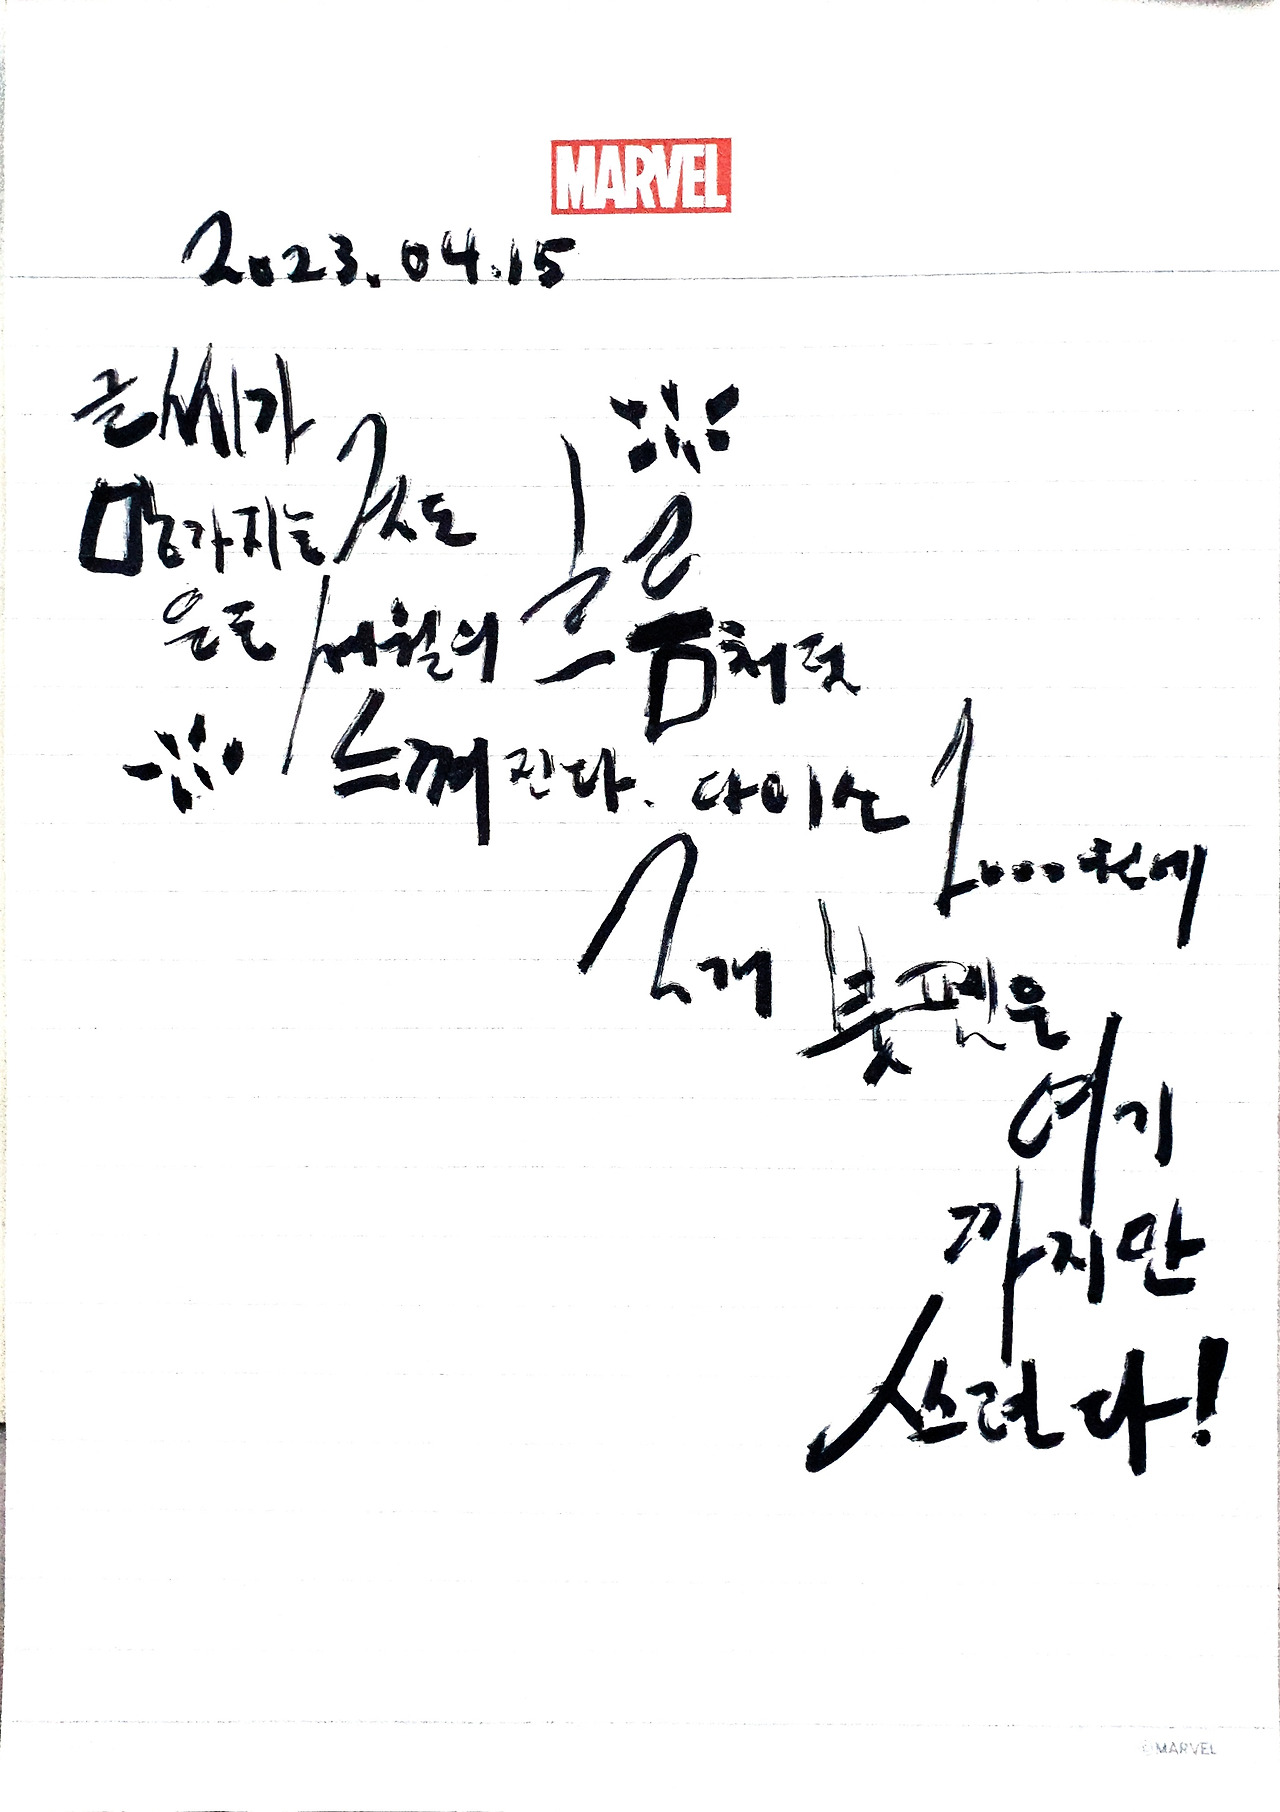 MARVEL
2023.04.15
글씨가
망가지는 것도
세월의 흐름처럼
느껴진다. 다이소 1000원에
2개 붓펜은
여기
까지만
쓰련다!
©MARVEL